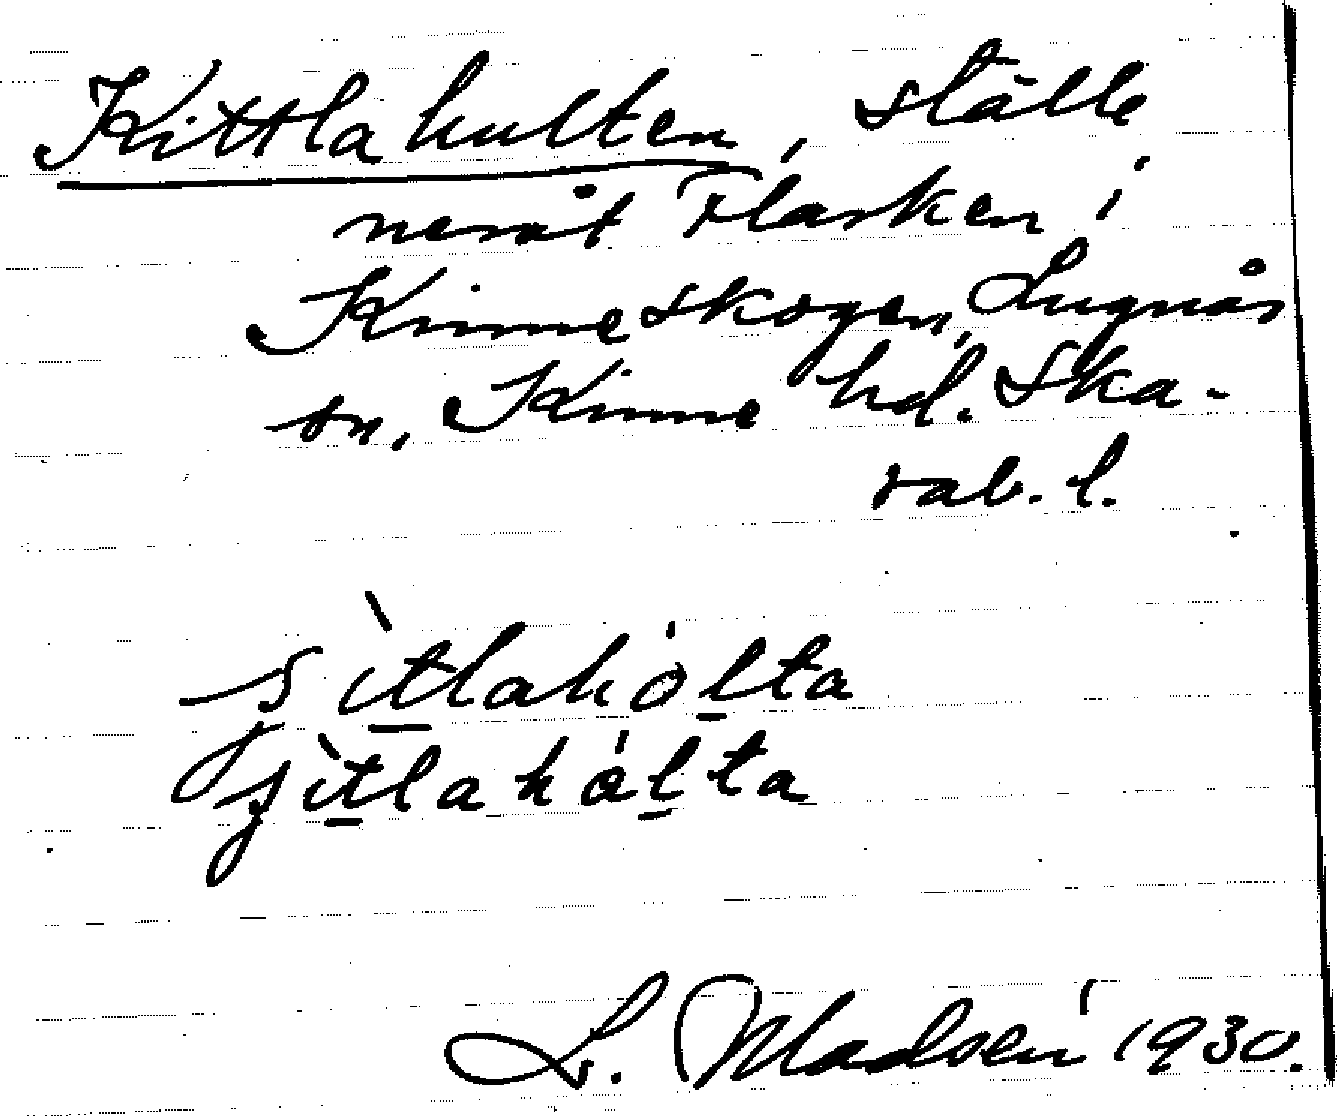 Kittlahulten, ställe
neråt Flasken i
Kinneskogen, Lugnås
sn, Kinne hd. Ska-
rab. l.
ʃìtlahólta
ʃìtlahólta
L. Madsén 1930.